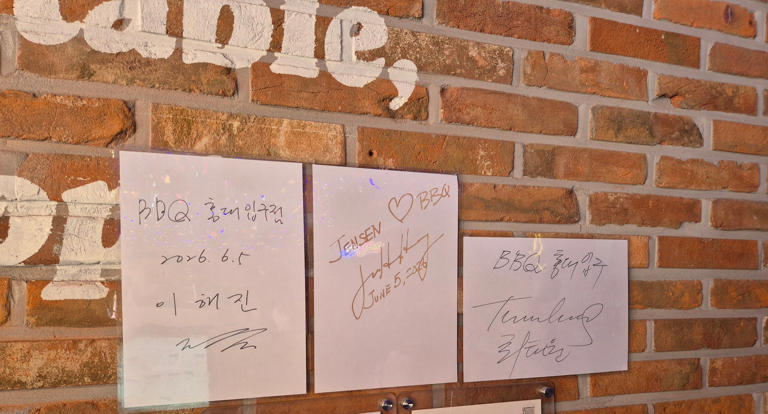 table,
BBQ 홍대입구점
2026. 6. 5
이 해 진
JENSEN ♡ BBQ
JUNE 5, 2026
BBQ 홍대입구